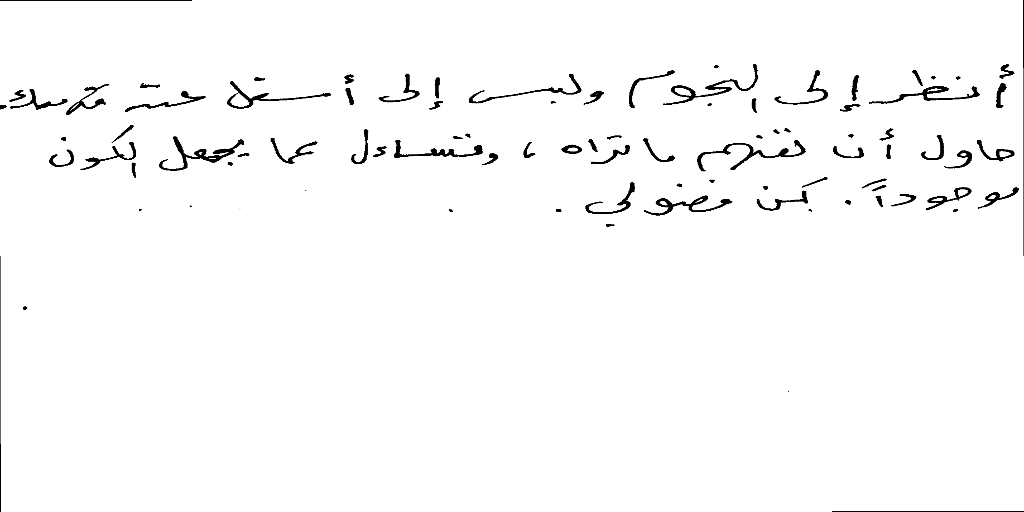 أنظر إلى النجوم وليس إلى أسفل عند قدميك.
حاول أن تفهم ماتراه ، وتتساءل عما يجعل الكون
موجوداً. كن فضولي .